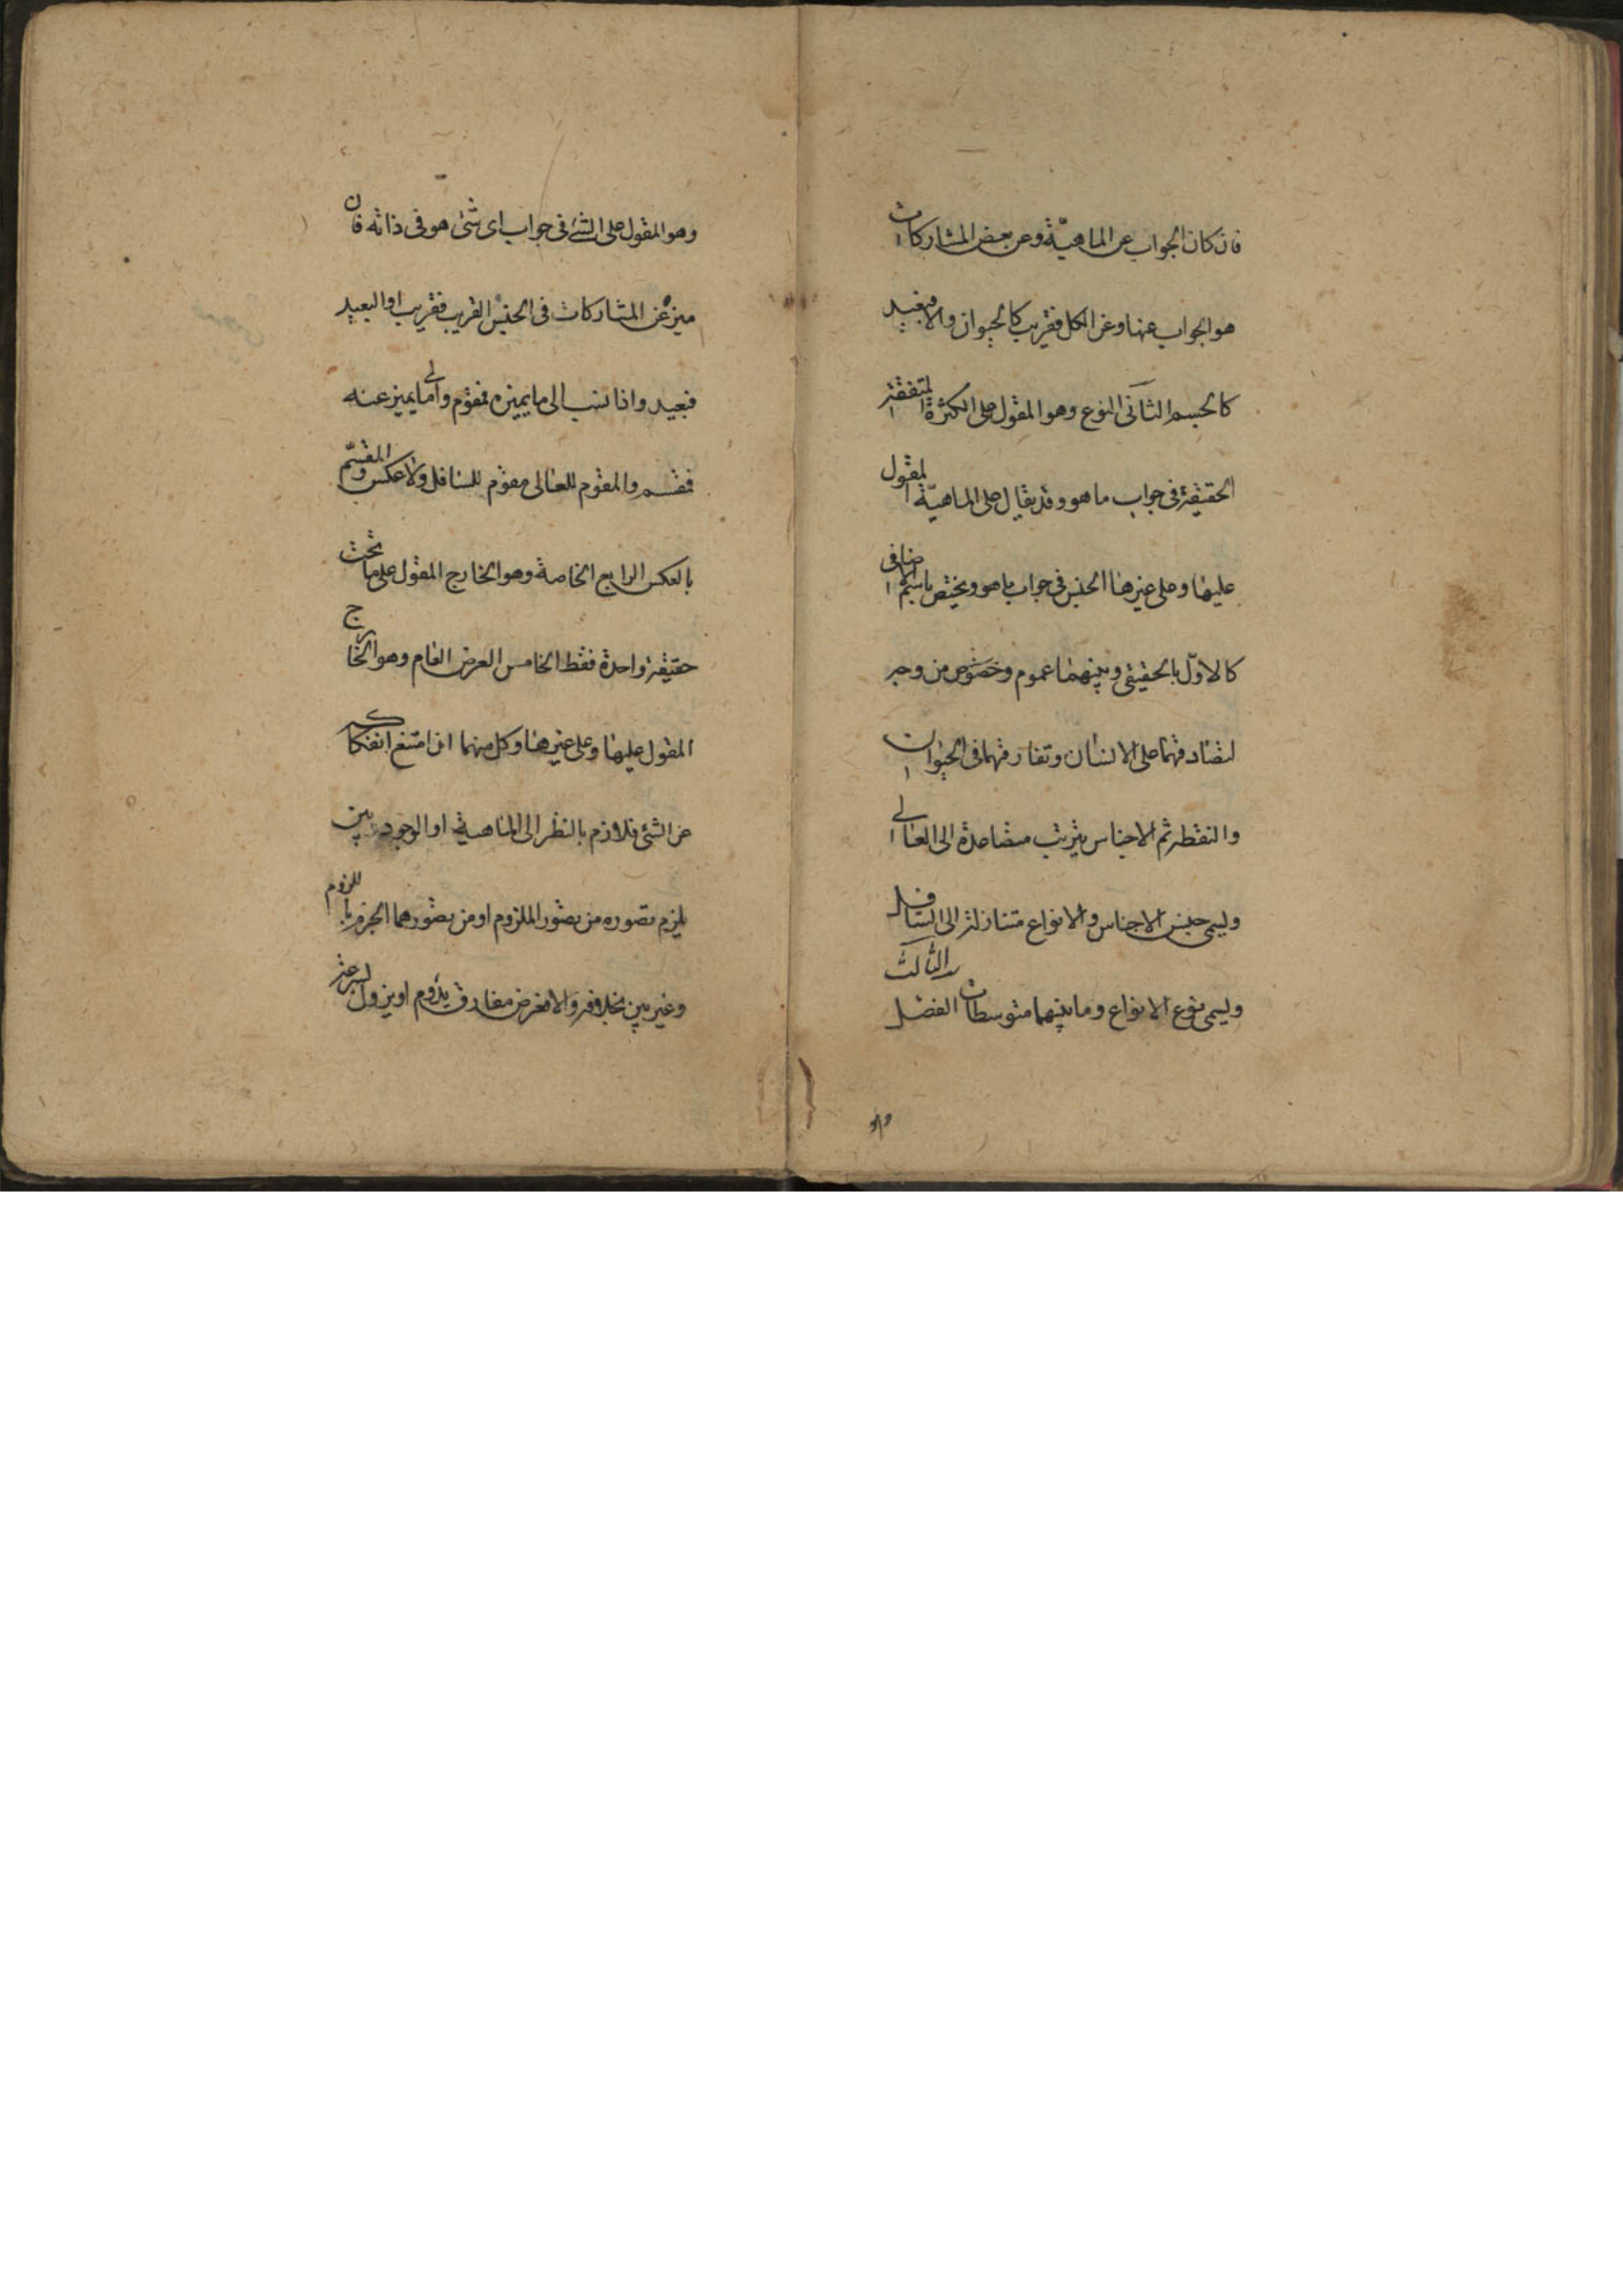 فان كان الجواب عن الماهيّة وعن بعض المشاركات
هو الجواب عنها وعن الكل فقريب كالحيوان والا فبعيد
كالجسم الثانى النوع وهو المقول على الكثرة المتفقة
الحقيقة فى جواب ما هو وقد يقال على الماهيّة المقول
عليها وعلى غيرها الجنس فى جواب ما هو ويختص باسم الاضافى
كالاوّل بالحقيقى وبينهما عموم وخصوص من وجه
لتصادقهما على الانسان وتفارقهما فى الحيوان
والنقطة ثم الاجناس يترتب متصاعدة الى العالى
ويسمى جنس الاجناس والانواع متنازلة الى السافل
ويسمى نوع الانواع وما بينهما متوسطات الثالث الفصل
وهو
وهو المقول على الشئ فى جواب اى شئ هو فى ذاته فان
ميزه عن المشاركات فى الجنس القريب فقريب او البعيد
فبعيد واذا نسب الى ما يميزه فمقوم والى ما يميز عنه
فمقسم والمقوم للعالى مقوم للسافل ولا عكس والمقسّم
بالعكس الرابع الخاصة وهو الخارج المقول على ما تحت
حقيقة واحدة فقط الخامس العرض العام وهو الخارج
المقول عليها وعلى غيرها وكل منهما ان امتنع انفكاكه
عن الشئ فلازم بالنظر الى الماهية او الوجود بين
يلزم تصوره من تصور الملزوم او من تصورهما الجزم باللزوم
وغير بين بخلافه والا فعرض مفارق يدوم او يزول بسرعة